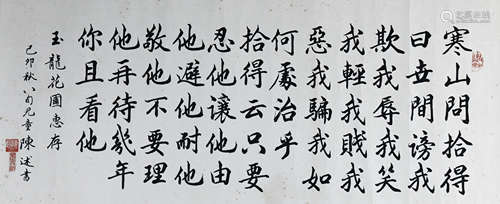 寒山問拾得
曰世間謗我
欺我辱我笑
我輕我賤我
惡我騙我如
何處治乎
拾得云只要
忍他讓他由
他避他耐他
敬他不要理
他再待幾年
你且看他
玉龍花園惠存
己卯秋八旬九童陳述書